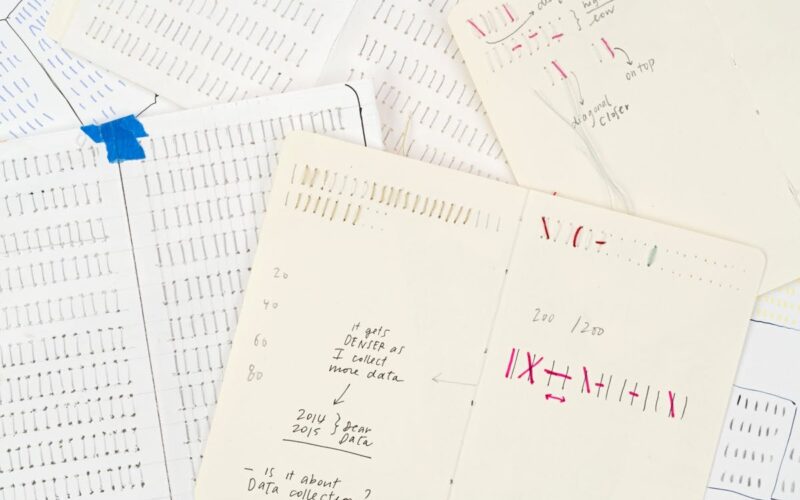 on top
diagonal
closer
20
40
60
80
it gets
DENSER as
I collect
more data
2014
2015
Dear
Data
- is it about
Data collection ?
200 /200